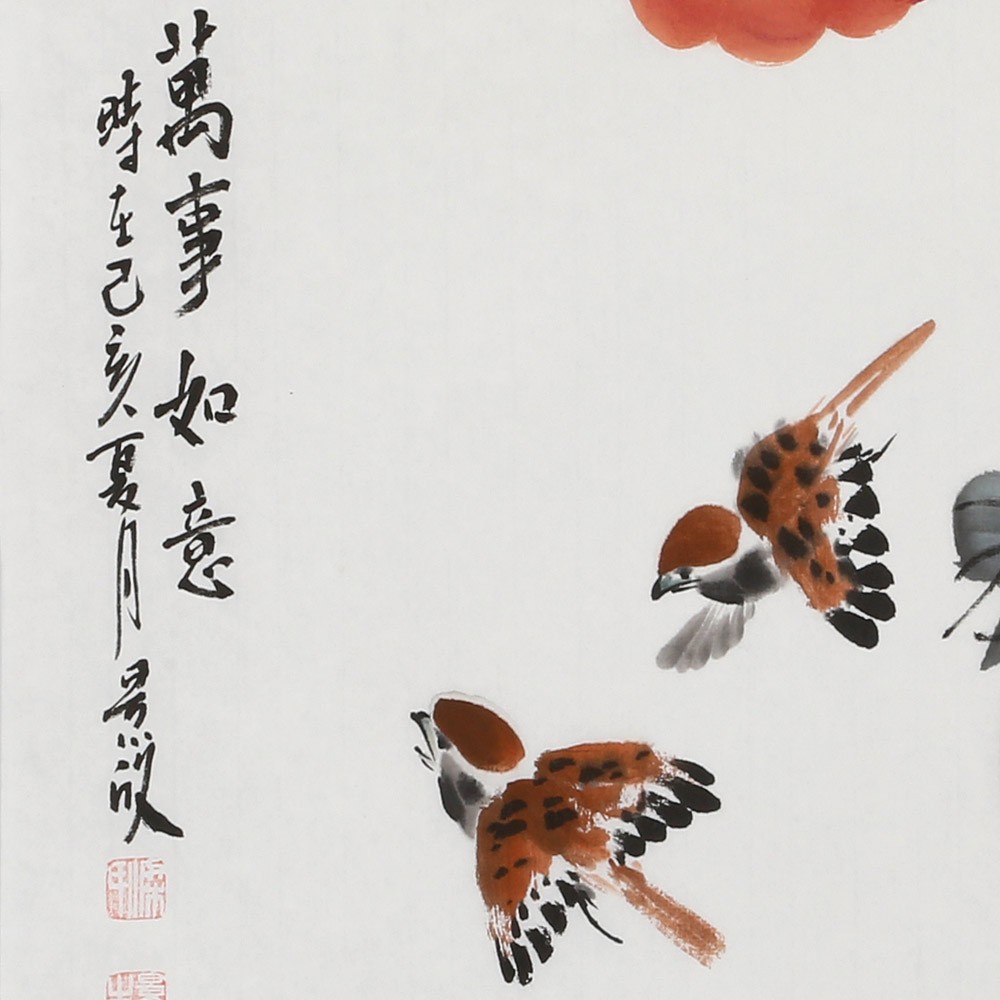 萬事如意
時在己亥夏月景